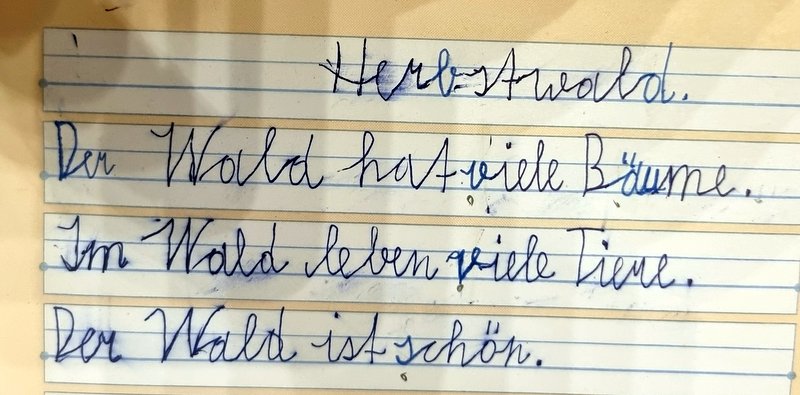 Herbstwald.
Der Wald hat viele Bäume.
Im Wald leben viele Tiere.
Der Wald ist schön.